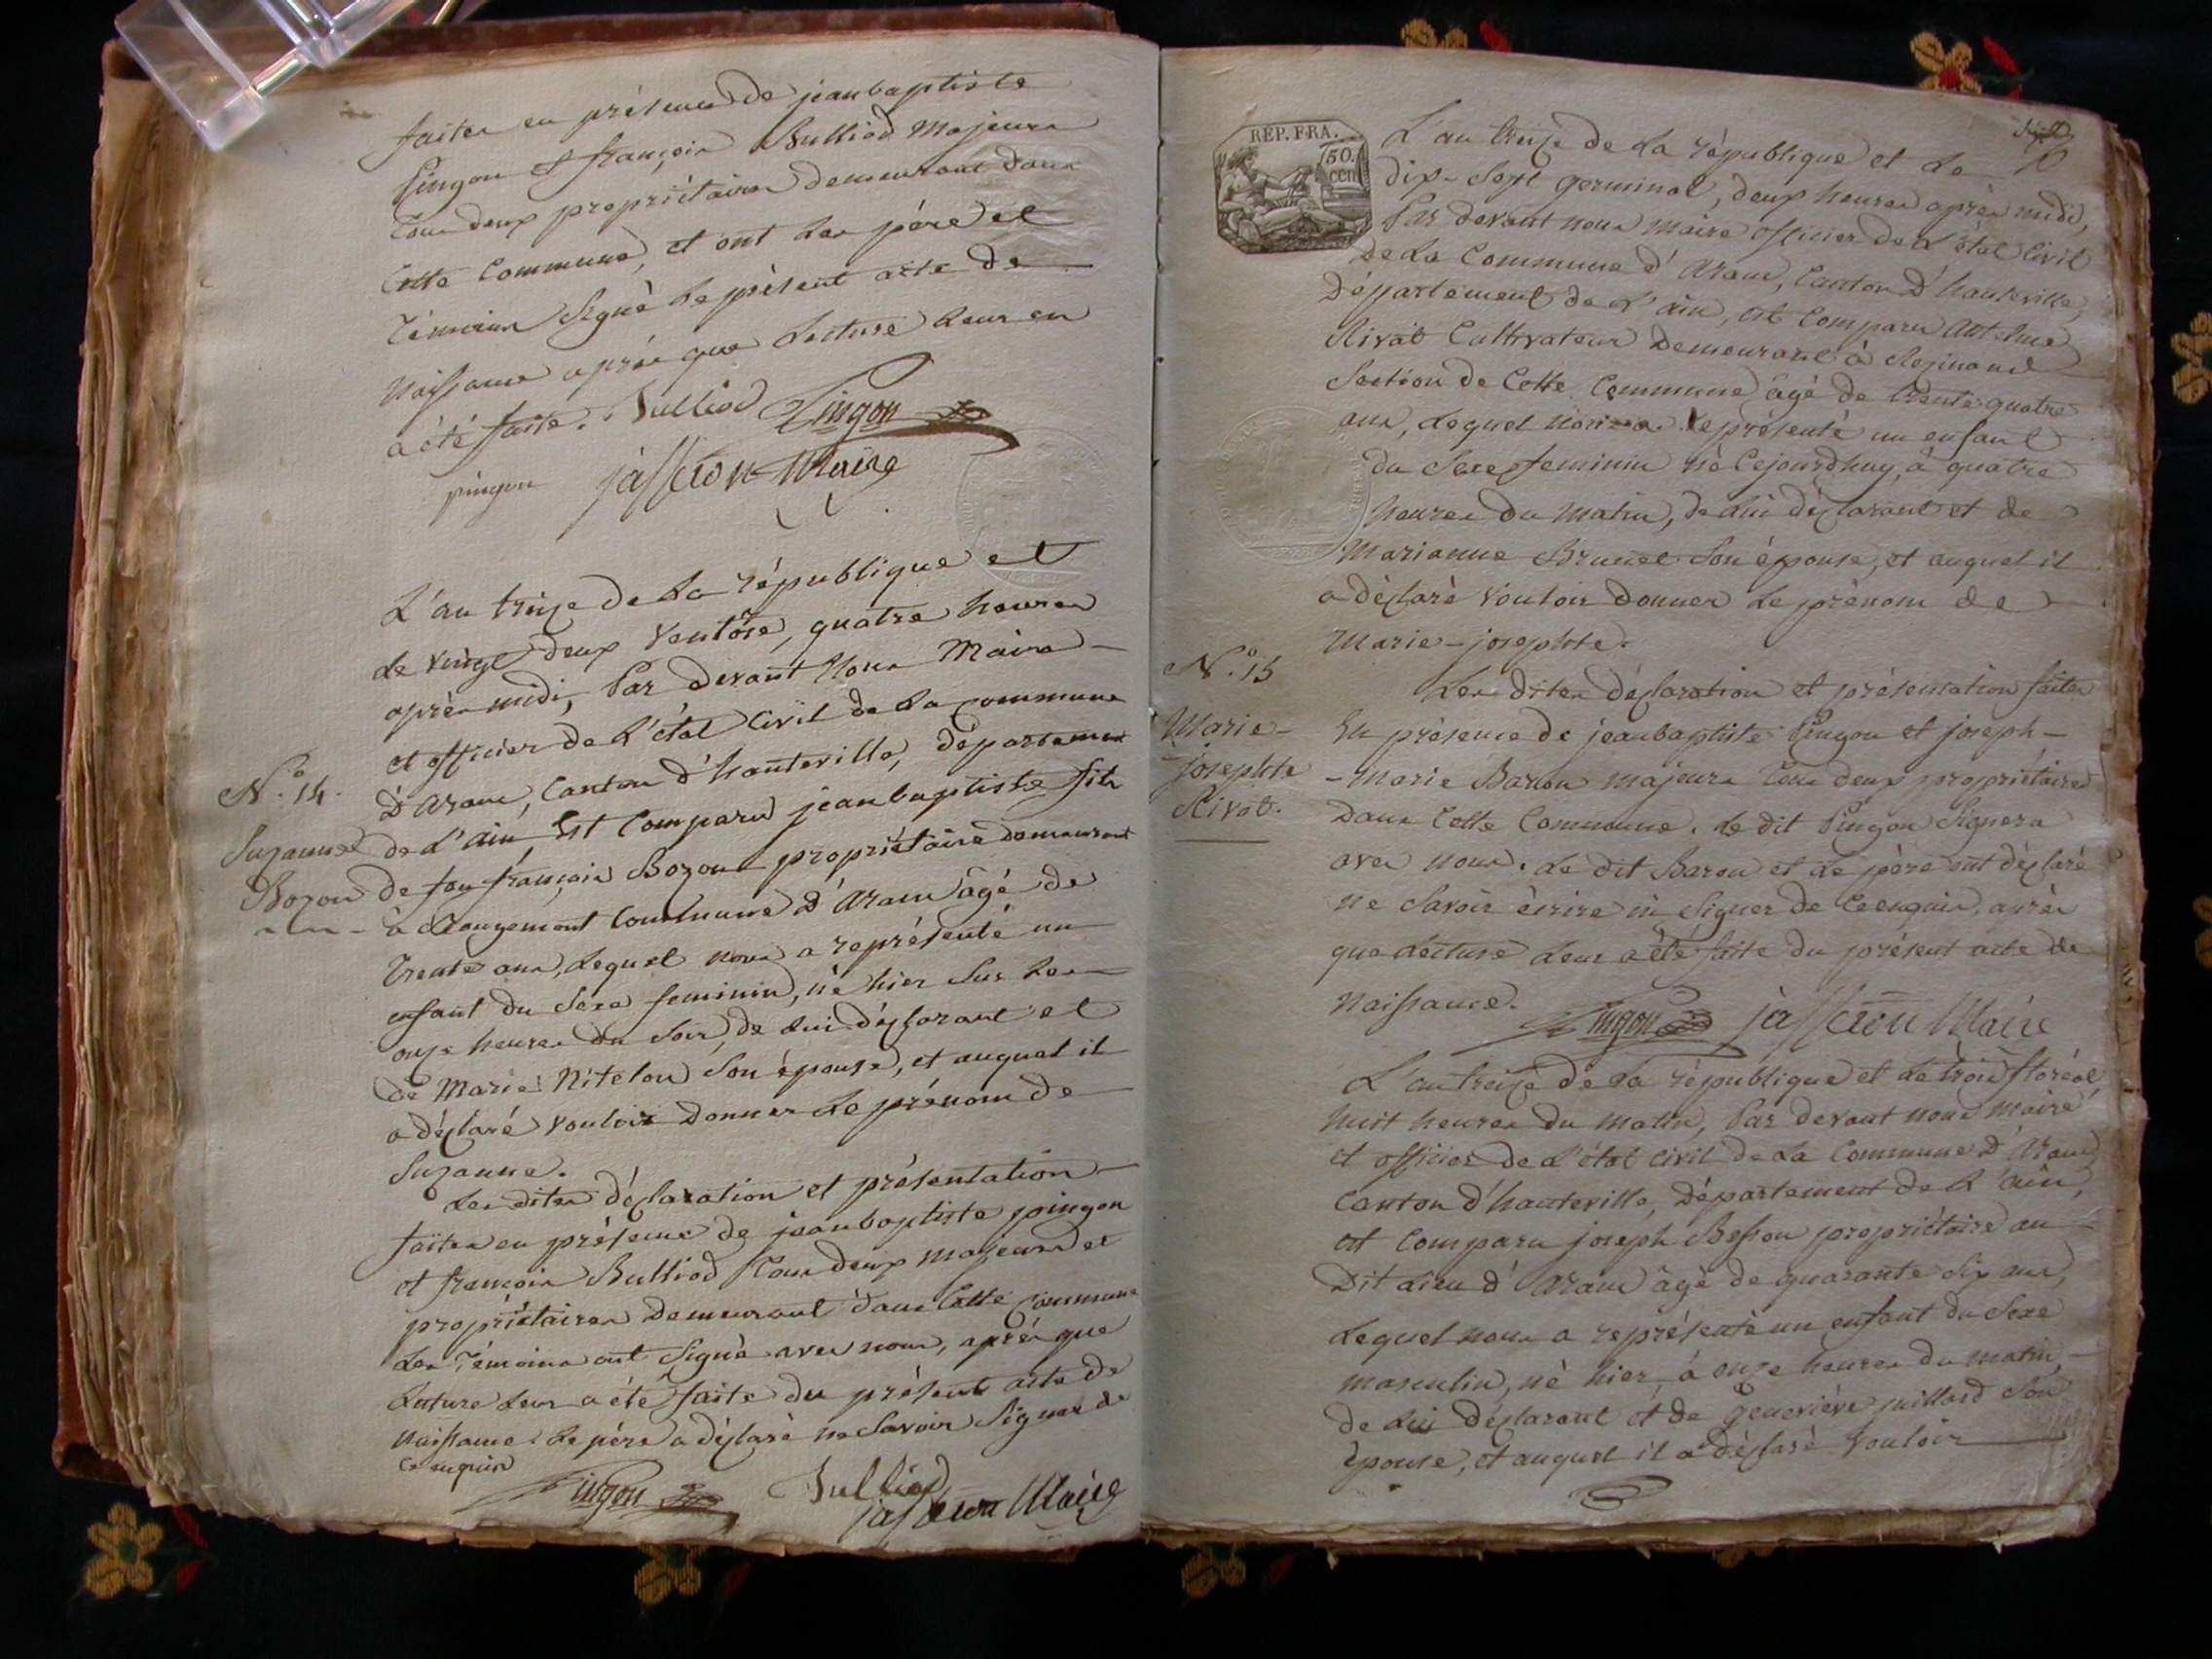 faites en présence de jeanbaptiste
Pingon et françois Bulliod Majeurs
tous deux propriétaires demeurant dans
Cette Commune, et ont les père et
Témoins Signé le présent acte de
Naissance après que Lecture leur en
a été faite. Bulliod Pingon
pingon jasseron Maire
L'an treize de la république et
le vingt deux Ventôse, quatre heures
après midi, Par devant Nous Maire
et officier de L'état Civil de la commune
N.º 14.
D'aranc, Canton d'hauteville, département
de L'ain, Est Comparu jeanbaptiste fils
Suzanne
Bozon
de feu françois Bozon propriétaire demeurant
à Commune d'Aranc âgé de
trente ans, Lequel nous a représenté un
enfant du Sexe feminin, né hier Sur les
onze heures du Soir, de Lui déclarant et
de Marie Nitelou Son épouse, et auquel il
a déclaré Vouloir Donner Le prénom de
Suzanne.
Les dites déclaration et présentation
faites en présence de jeanbaptiste pingon
et francois Bulliod tous deux majeurs et
propriétaires Demeurant dans Cette Commune
Les Témoins ont Signé avec nous, après que
Lecture leur a été faite du présent acte de
Naissance. Le père a déclaré ne Savoir Signer de
Ce enquis
Pingon Bulliod
jasseron Maire
REP. FRA.
50.
cen
L'an treize de La république et Le
dix-Sept germinal, deux heures après midi,
Par devant nous maire officier de L'état Civil
de La Commune d'Aranc, Canton D'hauteville,
Département de L'ain, est Comparu Anthelme
Rivat Cultivateur Demeurant à Resinand
Section de Cette Commune âgé de trente quatre
ans, Lequel représenté un enfant
du Sexe feminin né Cejourdhuy, à quatre
heures du Matin, de Lui déclarant et de
Marianne Brunet Son épouse, et auquel il
a déclaré Vouloir Donner Le prénom de
Marie-josephte.
N.º 15
Marie-
-josephte
Rivat.
Les dites déclaration et présentation faites
En présence de jeanbaptiste Pingon et joseph-
-Marie Baron majeurs tous deux propriétaires
Dans Cette Commune. Le dit Pingon Signera
avec nous. Le dit Baron et Le père ont déclaré
ne Savoir écrire ni Signer de Ce enquis, après
que Lecture Leur a été faite du présent acte de
Naissance.
Pingon jasseron Maire
L'an treize de La république et Le trois floréal
huit heures du matin, Par devant nous maire
et officier de L'état Civil de La Commune D'Aranc
Canton d'hauteville, Département de L'ain,
est Comparu joseph Besson propriétaire au
Dit Lieu d'Aranc âgé de quarante Six ans,
Lequel nous a représenté un enfant du Sexe
masculin, né hier à onze heures du matin
de Lui déclarant et de geneviève juillard Son
épouse, et auquel il a déclaré Vouloir